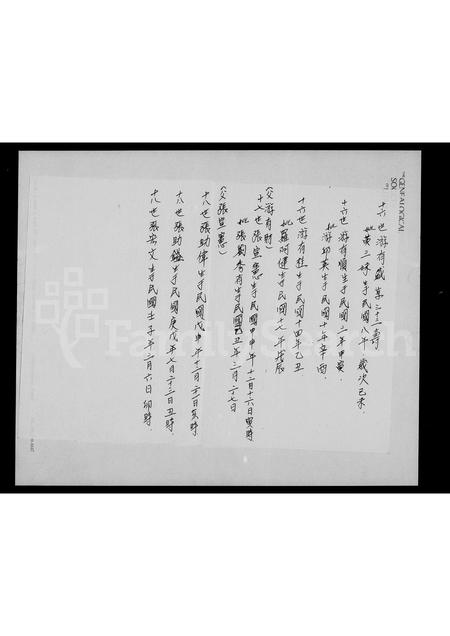 十六世游有盛享二十三壽
妣黃三妹生于民國八年歲次己未.
十六世游有順生于民國二年甲寅.
妣游却英生于民國十年辛酉.
十六世游有 生于民國十四年乙丑
妣羅阿健生于民國十七年戊辰
(父游有財)
十七世張宜憲生于民國甲申年十二月十六日寅時
妣張劉秀有生于民國己丑年三月二十七日
(父張宜憲)
十八世張助偉生于民國戊申年十二月二十二日亥時
十八世張助鎰生于民國庚戊年七月二十三日丑時.
十八世張宏文生于民國壬子年二月六日卯時.
GENEALOGICAL
SOC
FamilySearch